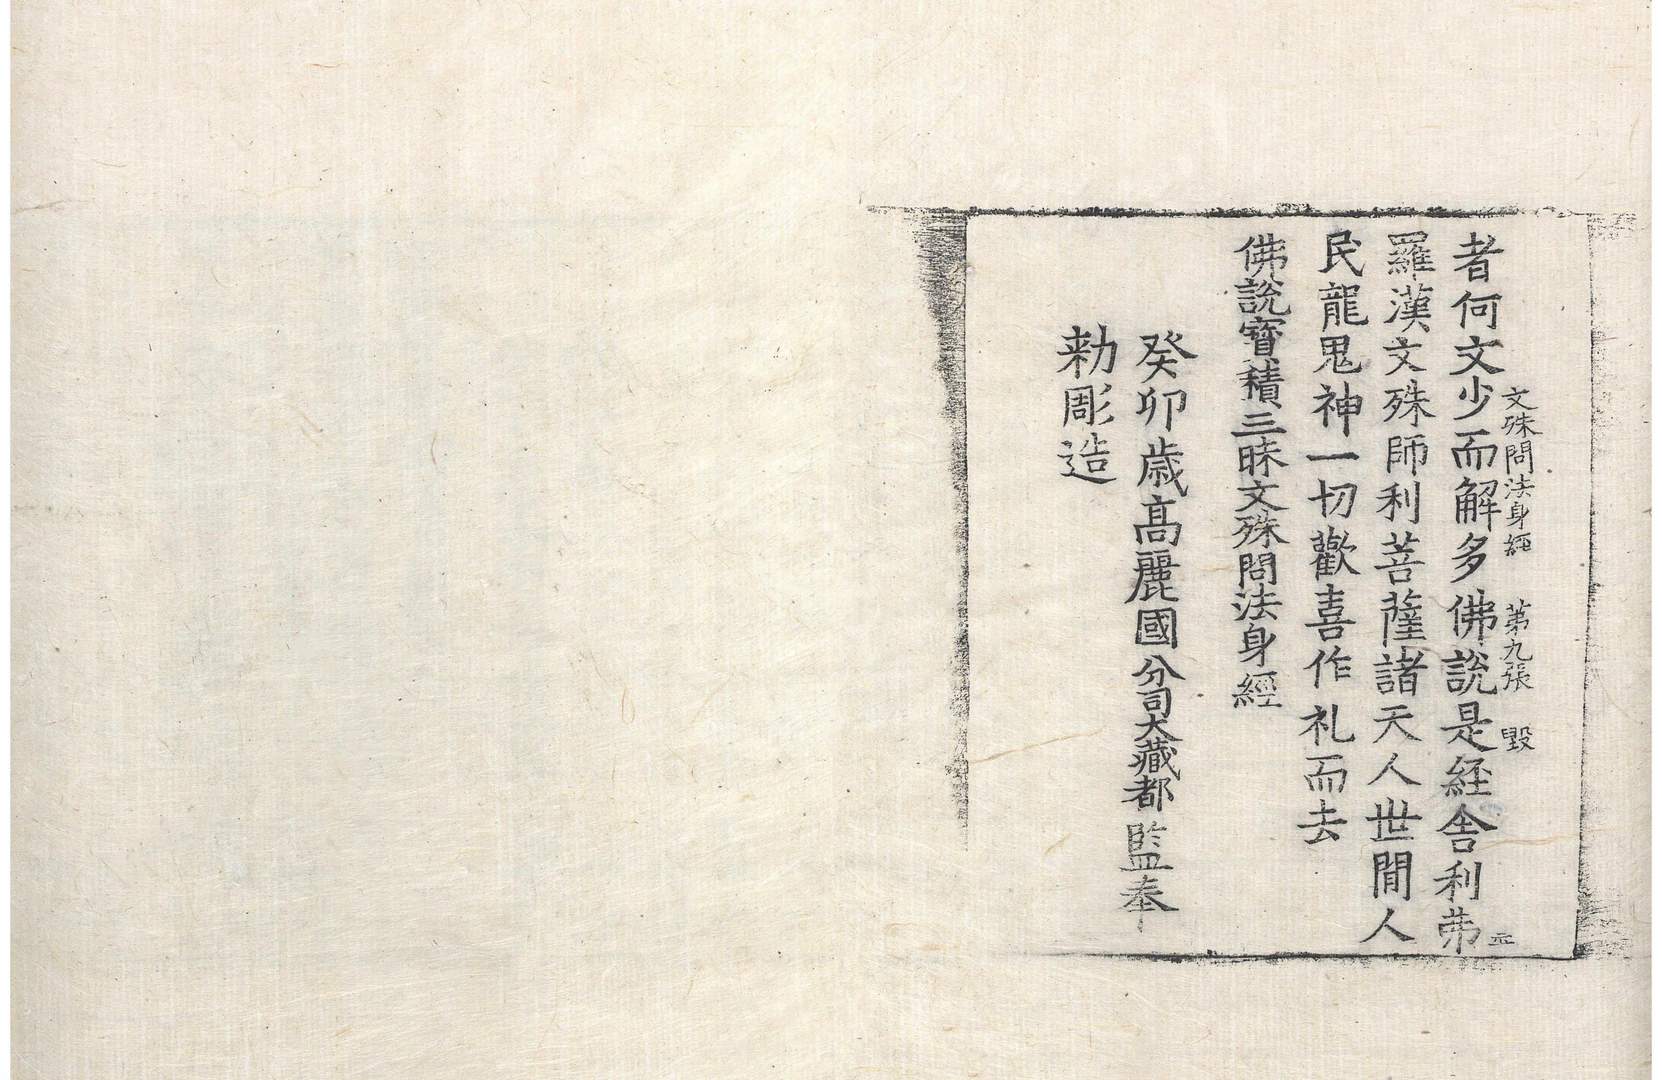 文殊問法身經 第九張 毀
者何文少而解多佛說是経舎利弗
羅漢文殊師利菩薩諸天人世間人
民龍鬼神一切歡喜作礼而去
佛說寶積三昧文殊問法身經
癸卯歳高麗國分司大藏都監奉
勅彫造